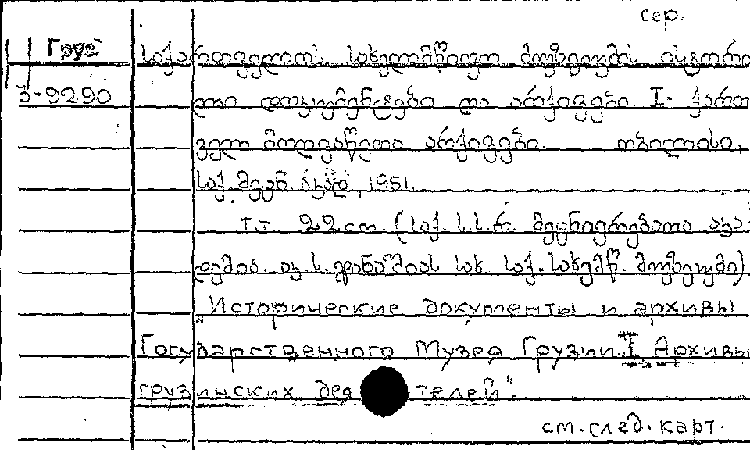 сер.
Груз
საქართველოს სახელმწიფო მუზეუმის ისტორი
3-9290
ული დოკუმენტები და არქივები I. ქართ
ველ მოღვაწეთა არქივები. თბილისი,
საქ. მეცნ. აკად., 1951.
т.т. 22 см. (საქ. ს.ს.რ. მეცნიერებათა აკა
დემია. აკ. ს. ჯანაშიას სახ. საქ. სახემწ. მუზეუმი).
„Исторические документы и архивы
Государственного Музея Грузии. I Архивы
грузинских деятелей".
см. след. карт.